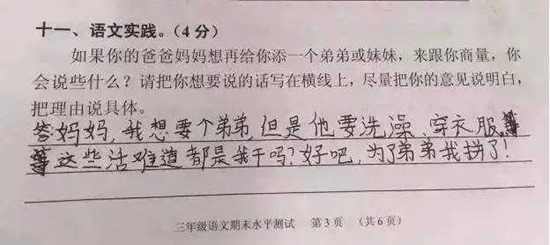 十一、语文实践。(4 分)
如果你的爸爸妈妈想再给你添一个弟弟或妹妹，来跟你商量，你
会说些什么？请把你想要说的话写在横线上，尽量把你的意见说明白，
把理由说具体。
答妈妈，我想要个弟弟，但是他要洗澡、穿衣服
等这些活难道都是我干吗？好吧，为了弟弟我拼了！
三年级语文期末水平测试 第3页 （共6页）